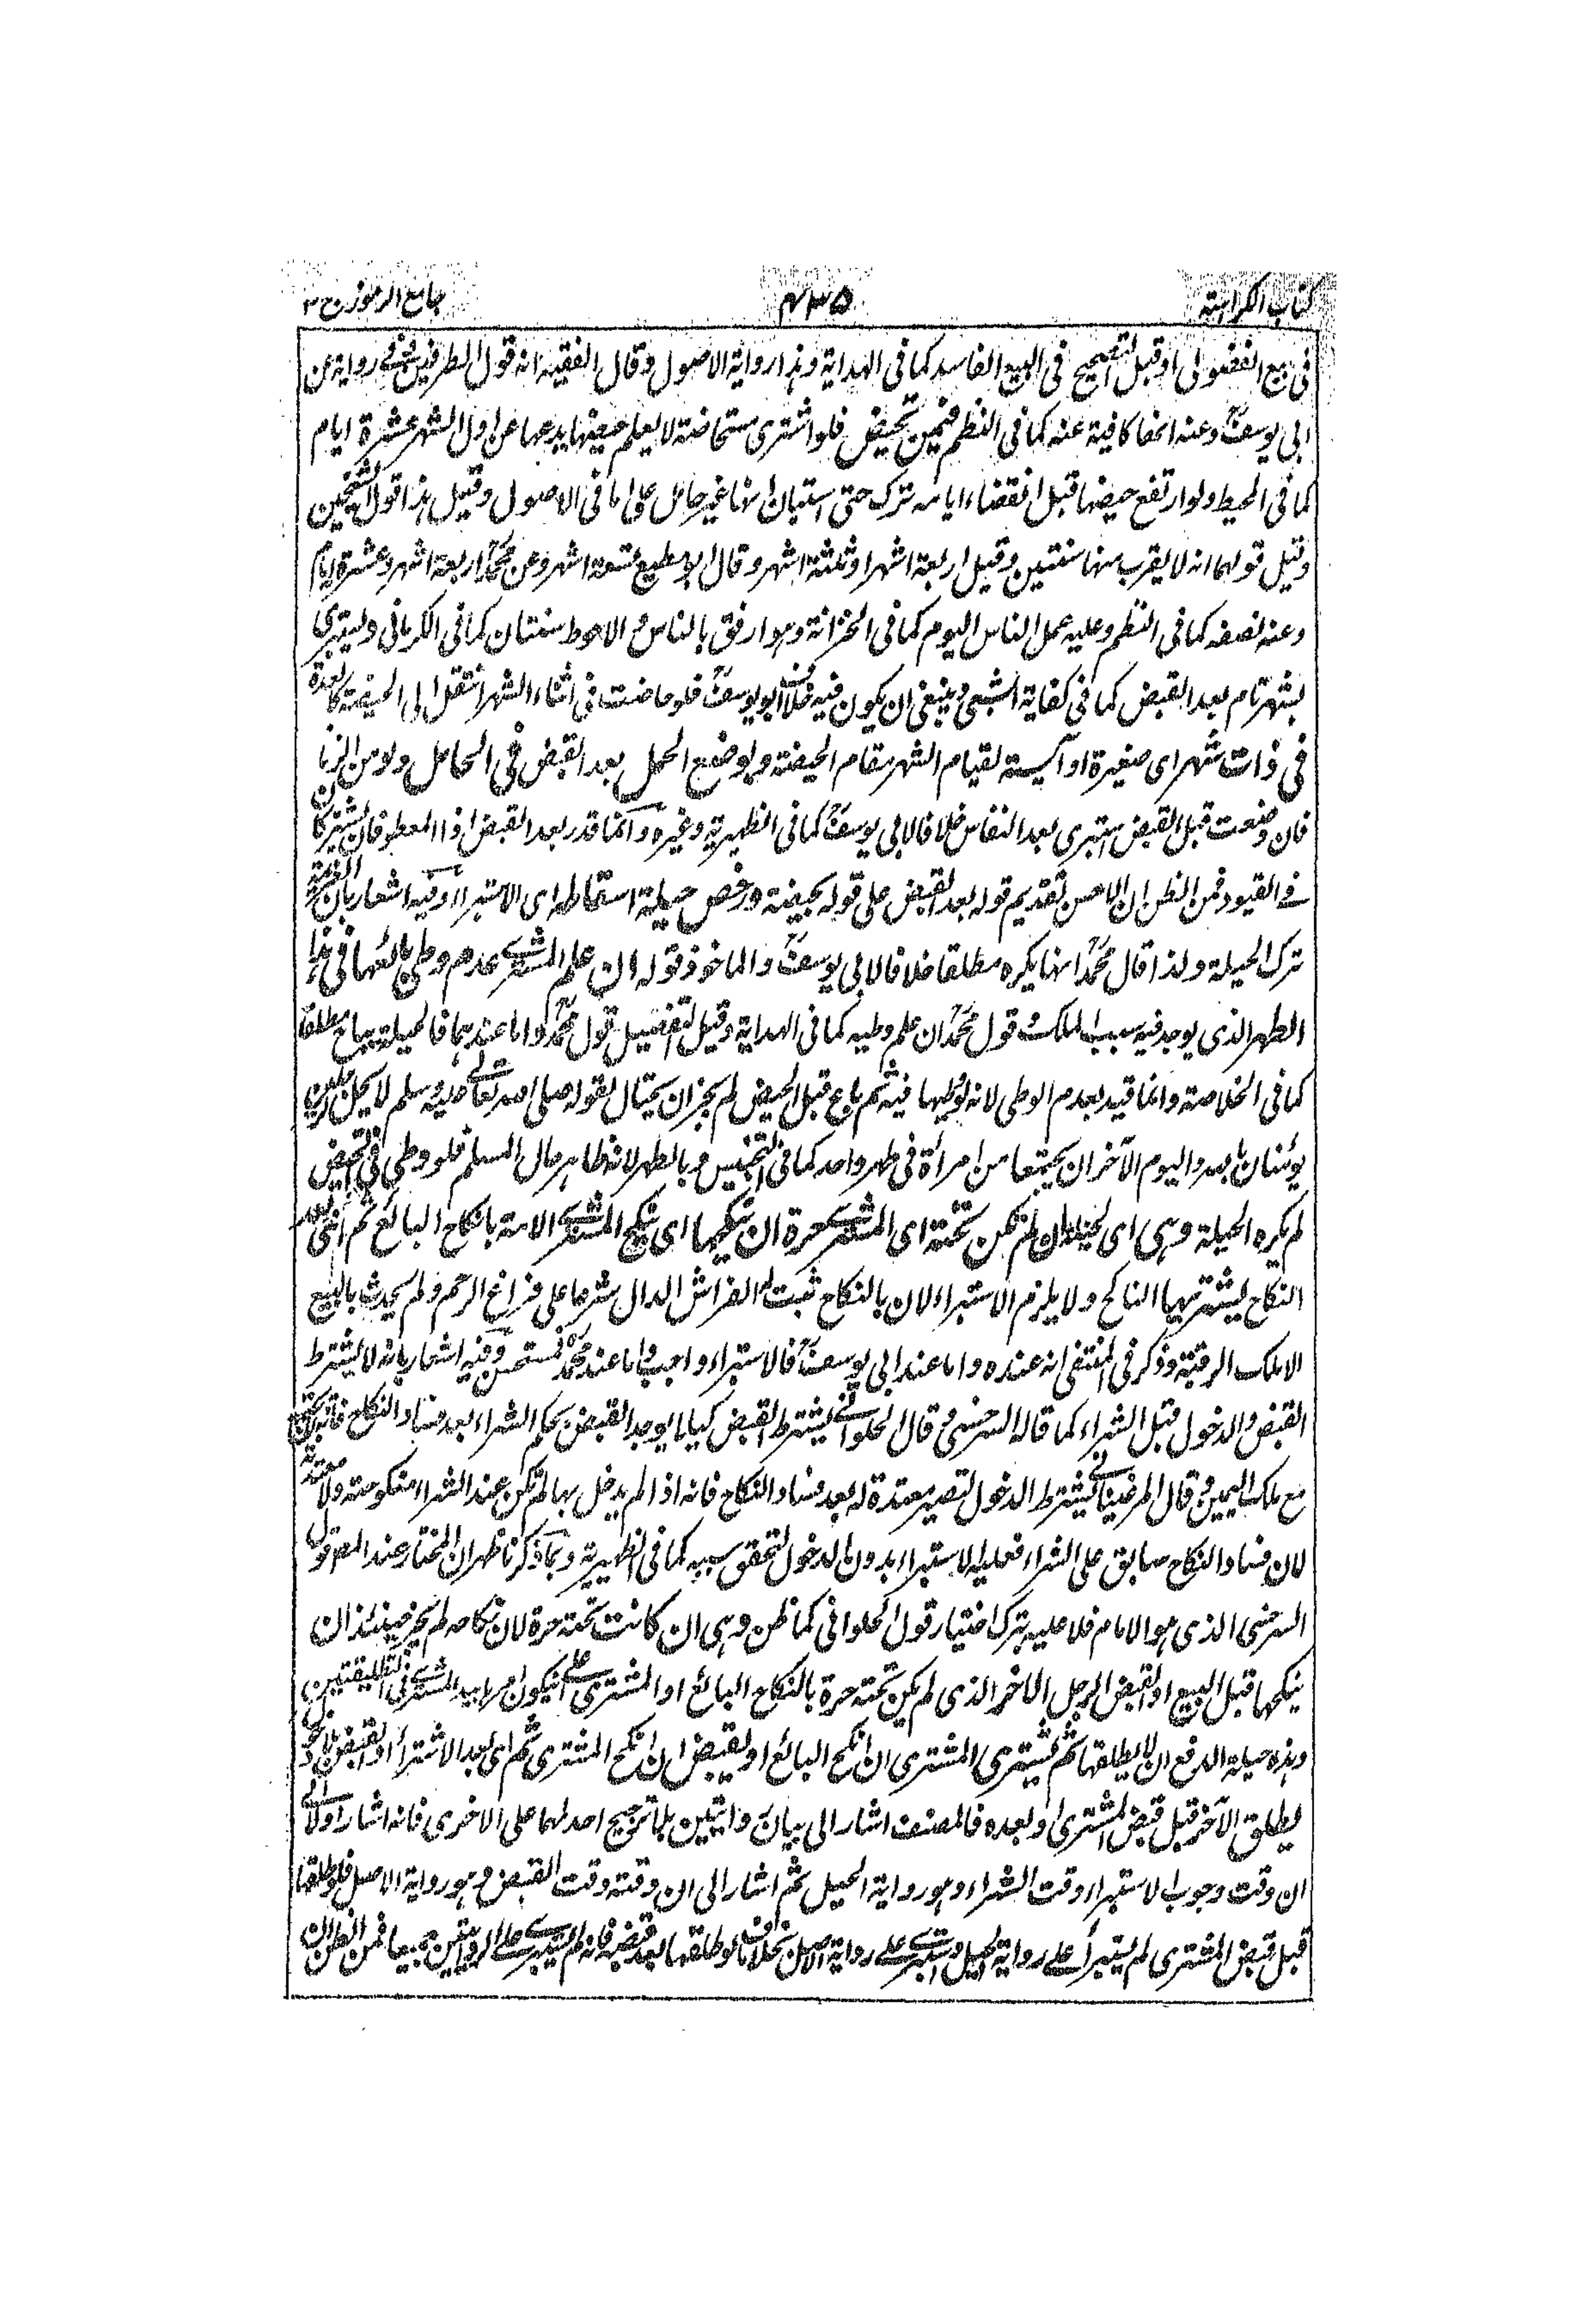 كتاب الكراهية ۴۳۵ جامع الرموز ج ۳
فى بيع الفضولى او قبل التصحيح فى البيع الفاسد كما فى الهداية وهذا رواية الاصول وقال الفقيه انه قول الطرفين وفى رواية عن
ابى يوسف وعنه انها كافية عنه كما فى النظم فيمن تحيض فلو اشترى مستحاضة لا يعلم حيضها يدعها من اول الشهر عشرة ايام
كما فى المحيط ولو ارتفع حيضها قبل انقضاء ايامه ترك حتى استبان انها غير حامل على ما فى الاصول وقيل هذا قول الشيخين
وقيل قولهما انه لا يقرب منها سنتين وقيل اربعة اشهر او ثلثة اشهر وقال ابو مطيع تسعة اشهر وعن محمد اربعة اشهر وعشرة ايام
وعنه نصفه كما فى النظم وعليه عمل الناس اليوم كما فى الخزانة وهو ارفق بالناس والاحوط سنتان كما فى الكرمانى ويستبرى
بشهر تام بعد القبض كما فى كفاية الشعبى وينبغى ان يكون فيه خلاف ابو يوسف فلو حاضت فى اثناء الشهر انتقل الى الحيضة كالعدة
فى ذات شهر اى صغيرة او آيسة لقيام الشهر مقام الحيضة وبوضع الحمل بعد القبض فى الحامل ولو من الزنا
فان وضعت قبل القبض استبرى بعد النفاس خلافا لابى يوسف كما فى الظهيرية وغيره وانما قدر بعد القبض اذا المعطوفان يشتركان
فى القيود فمن الظن ان الاحسن تقديم قوله بعد القبض على قوله بحيضة ورخص حيلة اسقاطه اى الاستبراء وفيه اشعار بان العزيمة
ترك الحيلة ولذا قال محمد انها يكره مطلقا خلافا لابى يوسف والماخوذ قوله ان علم المشترى عدم وطى بائعها فى هذا
الطهر الذى يوجد فيه سبب الملك وقول محمد ان علم وطيه كما فى الهداية وقيل التفصيل قول محمد واما عندهما فالحيلة يباح مطلقا
كما فى الخلاصة وانما قيد بعدم الوطى لانه لو وطيها فيه ثم باع قبل الحيض لم يجز ان يحتال لقوله صلى الله تعالى عليه وسلم لا يحل لرجلين
يؤمنان بالله واليوم الآخر ان يجتمعا من امرأة فى طهر واحد كما فى التجنيس وبالطهر لانه ظاهر حال المسلم فلو وطى فى الحيض
لم يكره الحيلة وهى اى الحيلة ان لم تكن تحته اى المشترى حرة ان ينكحها اى ينكح المشترى الامة بانكاح البائع ثم اى بعد
النكاح يشتريها الناكح ولا يلزم الاستبراء لان بالنكاح ثبت له الفراش الدال شرعا على فراغ الرحم ولم يحدث بالبيع
الا ملك الرقبة وذكر فى المنتقى انه عنده واما عند ابى يوسف فالاستبراء واجب واما عند محمد فمستحسن وفيه اشعار بانه لا يشترط
القبض والدخول قبل الشراء كما قاله السرخسى وقال الحلوانى يشترط القبض كيلا يوجد القبض بحكم الشراء بعد فساد النكاح فانه لا يتحقق
مع ملك اليمين وقال المرغينانى يشترط الدخول لتصير معتدة له بعد فساد النكاح فانه اذا لم يدخل بها لم تكن عند الشراء منكوحته ولا معتدته
لان فساد النكاح سابق على الشراء فعليه الاستبراء بدون الدخول لتحقق سببه كما فى الظهيرية وبما ذكرنا ظهر ان المختار عند المص قول
السرخسى الذى هو الامام فلا عليه بترك اختيار قول الحلوانى كما ظن وهى ان كانت تحته حرة لان نكاحه لم يجز حينئذ ان
ينكحها قبل البيع او القبض الرجل الآخر الذى لم يكن تحته حرة بالنكاح البائع او المشترى على ان يكون امرها بيد المشترى فى التطليقتين
وهذه حيلة الدفع ان لا يطلقها ثم يشترى المشترى ان انكح البائع او يقبض ان انكح المشترى ثم اى بعد الاشتراء او القبض
يطلق الآخر قبل قبض المشترى او بعده فالمصنف اشار الى بيان روايتين بلا ترجيح احدلهما على الاخرى فانه اشار اولا الى
ان وقت وجوب الاستبراء وقت الشراء وهو رواية الحيل ثم اشار الى ان وقته وقت القبض وهو رواية الاصل فلو طلقها
قبل قبض المشترى لم يستبرأ على رواية الحيل واستبرى على رواية الاصل بخلاف ما لو طلقها بعد قبضه فانه لم يستبرى على الروايتين جميعا فمن الظن ان